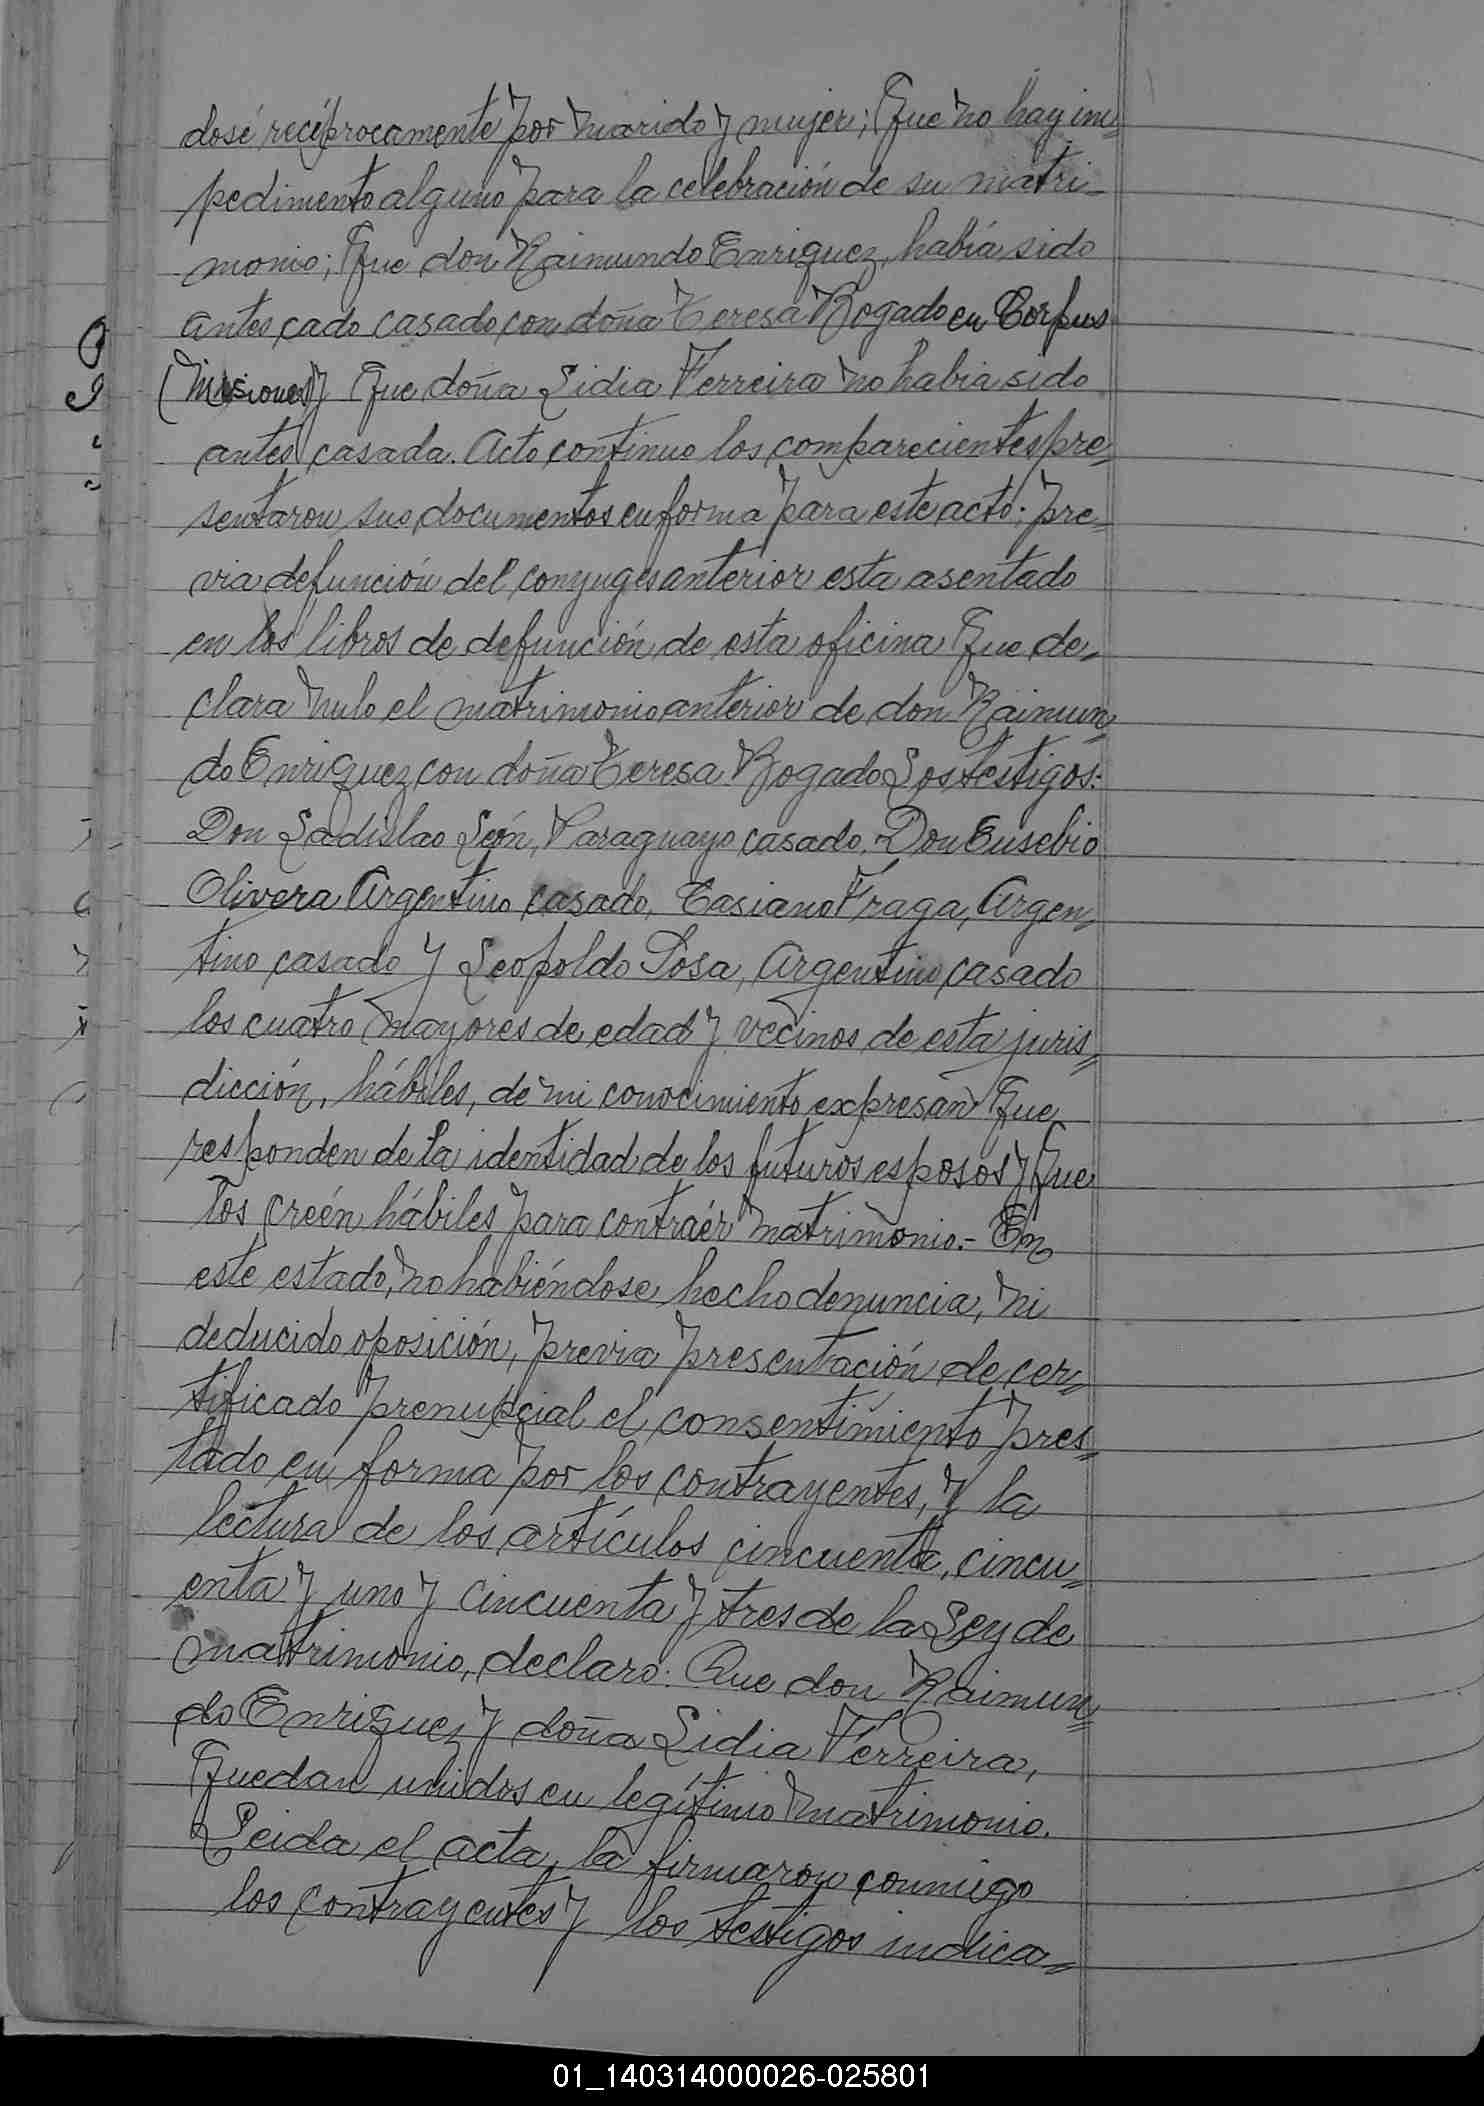 dosé recíprocamente por marido y mujer; Que no hay im-
pedimento alguno para la celebración de su matri-
monio; Que don Raimundo Enriquez, había sido
antes cado casado con doña Teresa Bogado en Corpus
(Misiones) y Que doña Lidia Ferreira no habia sido
antes casada. Acto continuo los comparecientes pre-
sentaron sus documentos en forma para este acto; pre-
via defunción del conyuges anterior esta asentado
en los libros de defunción de esta oficina Que de-
clara nulo el matrimonio anterior de don Raimun-
do Enriquez con doña Teresa Bogado Los testigos:
Don Ladislao León, Paraguayo casado, Don Eusebio
Olivera Argentino casado, Casiano Fraga, Argen-
tino casado y Leopoldo Sosa, Argentino casado
los cuatro mayores de edad y vecinos de esta juris-
dicción, hábiles, de mi conocimiento expresan Que
responden de la identidad de los futuros esposos y Que
los creén hábiles para contraér matrimonio.- En
este estado, no habiéndose hecho denuncia, ni
deducido oposición, previa presentación de cer-
tificado prenupcial el consentimiento pres-
tado en forma por los contrayentes, y la
lectura de los artículos cincuenta, cincu-
enta y uno y cincuenta y tres de la Ley de
matrimonio, declaro: Que don Raimun-
do Enriquez y doña Lidia Ferreira,
Quedan unidos en legítimo matrimonio.
Leida el acta, la firmaron conmigo
los contrayentes y los testigos indica-
01_140314000026-025801